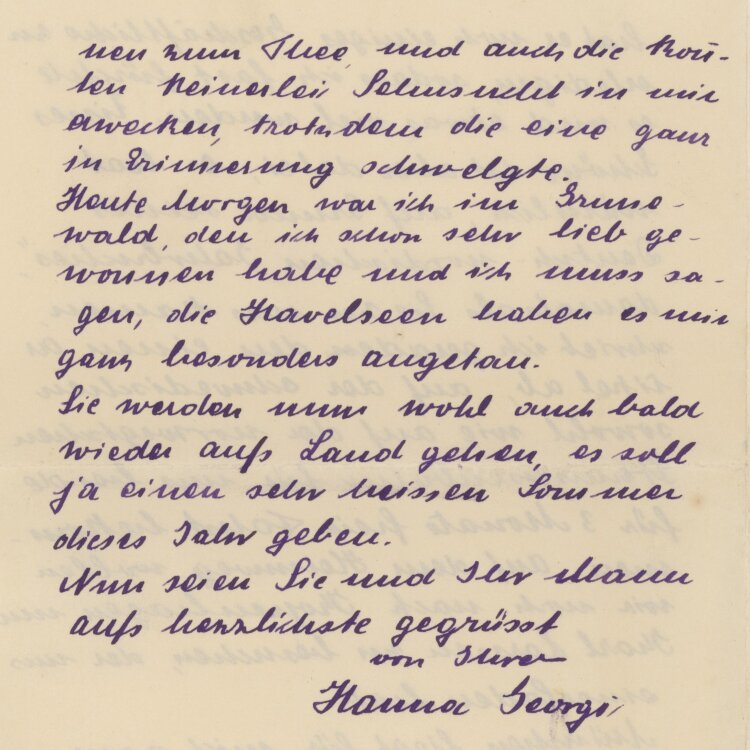 nen zum Thee, und auch die konn-
ten keinerlei Sehnsucht in mir
erwecken, trotzdem die eine ganz
in Erinnerung schwelgte.
Heute Morgen war ich im Grune-
wald, den ich schon sehr lieb ge-
wonnen habe und ich muss sa-
gen, die Havelseen haben es mir
ganz besonders angetan.
Sie werden nun wohl auch bald
wieder aufs Land gehen, es soll
ja einen sehr heissen Sommer
dieses Jahr geben.
Nun seien Sie und Ihr Mann
aufs herzlichste gegrüsst
von Ihrer
Hanna Georgi